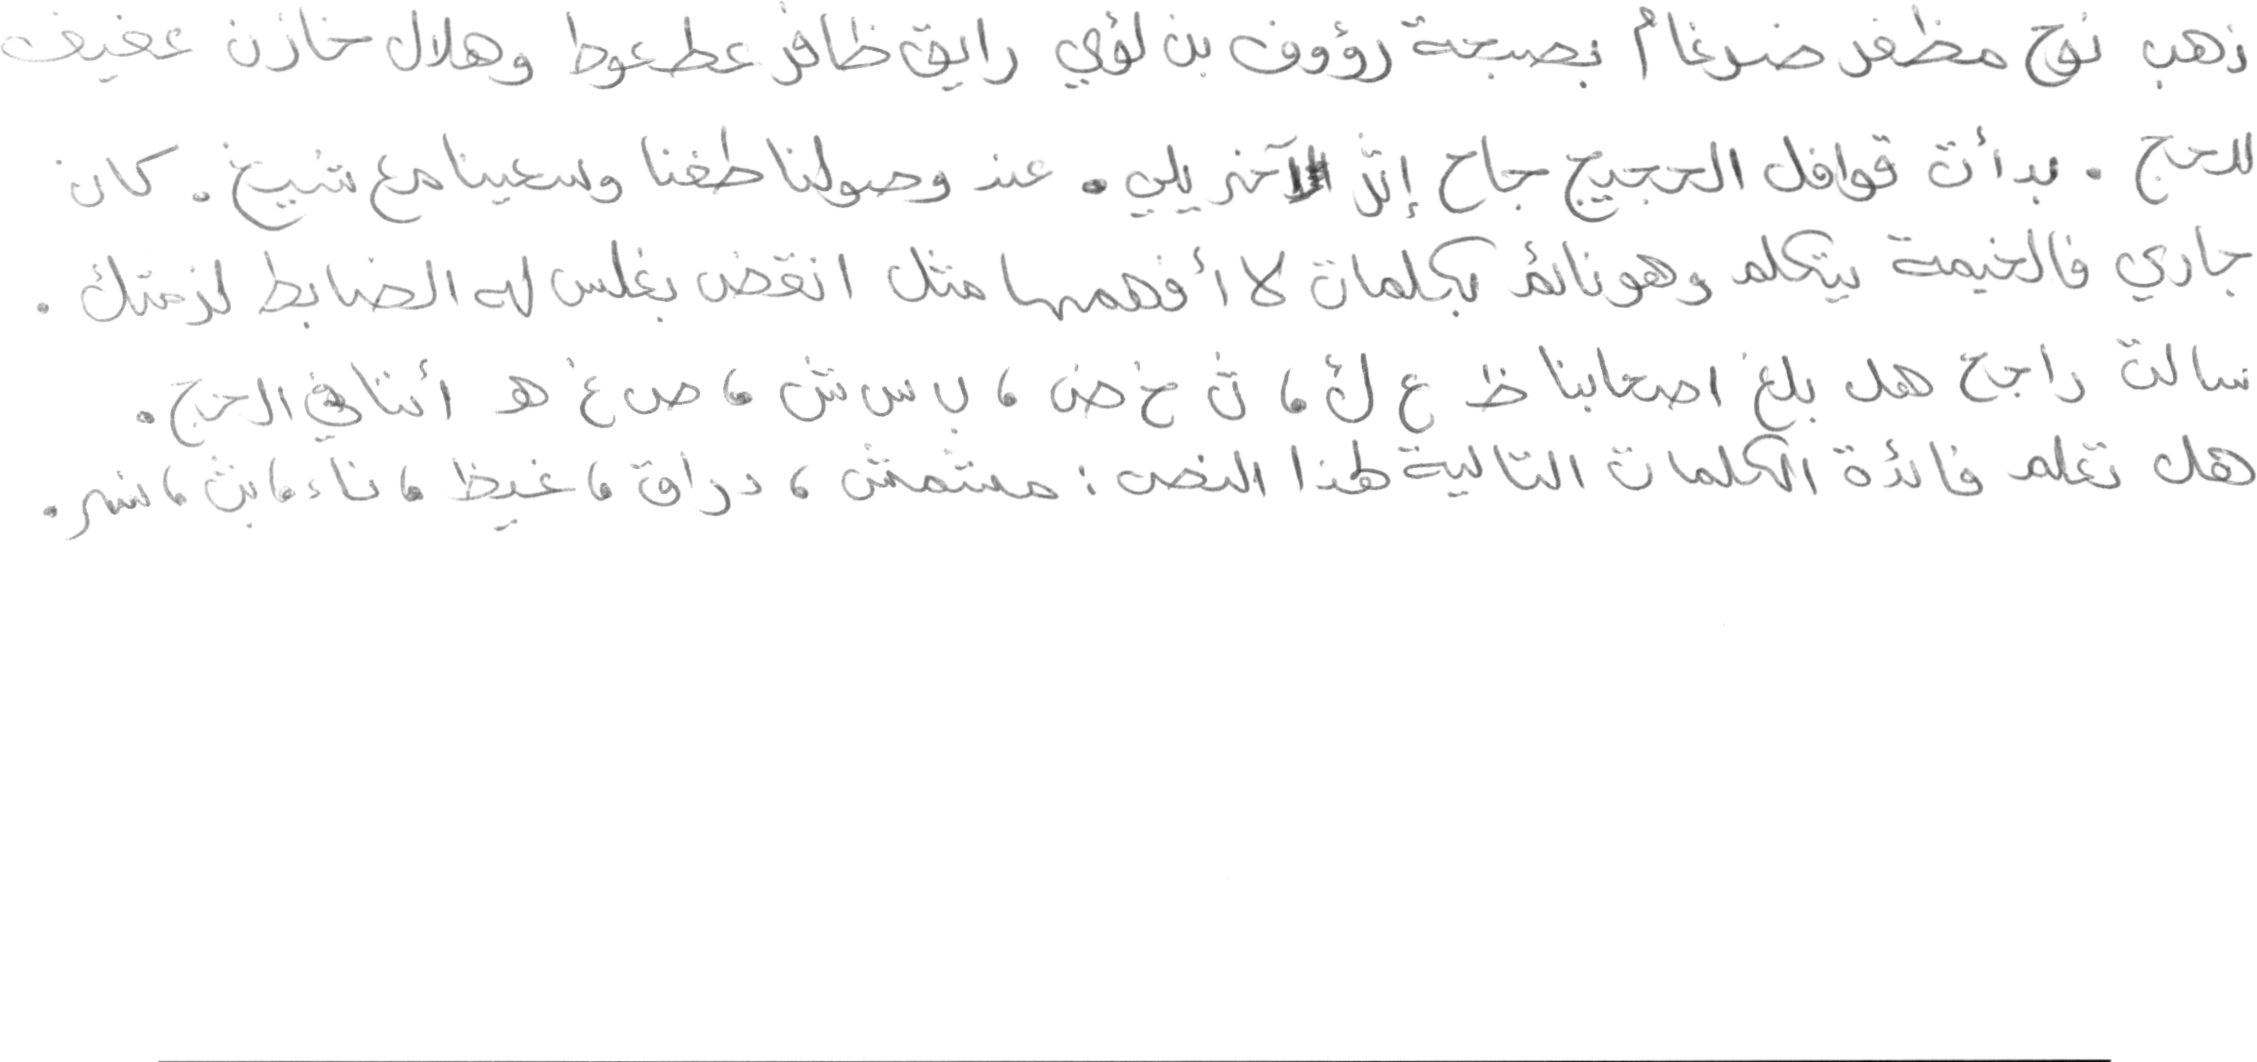 ذهب نوح مظفر ضرغام بصبحة رؤوف بن لؤي رايق ظافر عطعوط وهلال خازن عفيف
للحج . بدأت قوافل الحجيج جاح إثر الآخر يلي . عند وصولنا طفنا وسعينا مع شيخ . كان
جاري فالخيمة يتكلم وهو نائم بكلمات لا أفهمها مثل انقض بغلس له الضابط لزمتك .
سالت راجح هل بلغ اصحابنا ظ ع ك ، ث خ ض ، ب س ش ، ص غ هـ أثنا في الحج .
هل تعلم فائدة الكلمات التالية لهذا النص : مشمش ، دراق ، غيظ ، ناء ، بث ، نسر .